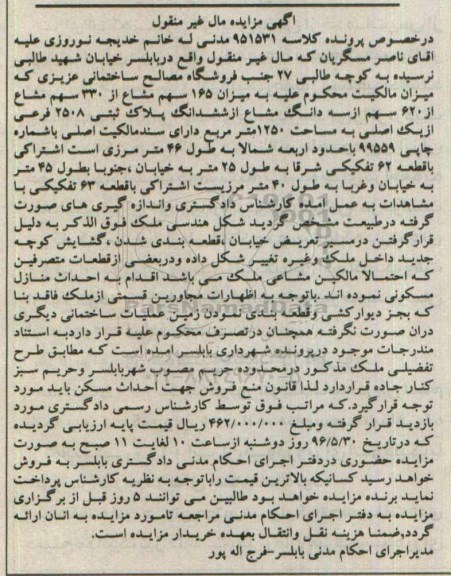 آگهی مزایده مال غیر منقول
درخصوص پرونده کلاسه ۹۵۱۵۳۱ مدنی له خانم خدیجه نوروزی علیه
اقای ناصر مسگریان که مال غیر منقول واقع دربابلسر خیابان شهید طالبی
نرسیده به کوچه طالبی ۲۷ جنب فروشگاه مصالح ساختمانی عزیزی که
میزان مالکیت محکوم علیه به میزان ۱۶۵ سهم مشاع از ۳۳۰ سهم مشاع
از ۶۲۰ سهم ازسه دانگ مشاع ازششدانگ پلاک ثبتی ۲۵۰۸ فرعی
ازیک اصلی به مساحت ۱۲۵۰متر مربع دارای سندمالکیت اصلی باشماره
چاپی ۹۹۵۵۹ باحدود اربعه شمالا به طول ۴۶ متر مرزی است اشتراکی
باقطعه ۶۲ تفکیکی شرقا به طول ۲۵ متر به خیابان ،جنوبا بطول ۴۵ متر
به خیابان وغربا به طول ۴۰ متر مرزیست اشتراکی باقطعه ۶۳ تفکیکی با
مشاهدات به عمل آمده کارشناس دادگستری واندازه گیری های صورت
گرفته درطبیعت مشخص گردید شکل هندسی ملک فوق الذکر به دلیل
قرارگرفتن درمسیر تعریض خیابان ،قطعه بندی شدن ،گشایش کوچه
جدید داخل ملک وغیره تغییر شکل داده ودربعضی ازقطعات متصرفین
که احتمالا مالکین مشاعی ملک می باشد اقدام به احداث منازل
مسکونی نموده اند .باتوجه به اظهارات مجاورین قسمتی ازملک فاقد بنا
که بجز دیوارکشی وقطعه بندی نمودن زمین عملیات ساختمانی دیگری
دران صورت نگرفته همچنان درتصرف محکوم علیه قرار داردبه استناد
مندرجات موجود درپرونده شهرداری بابلسر امده است که مطابق طرح
تفضیلی ملک مذکور درمحدوده حریم مصوب شهربابلسر وحریم سبز
کنار جاده قراردارد لذا قانون منع فروش جهت احداث مسکن باید مورد
توجه قرارگیرد.که مراتب فوق توسط کارشناس رسمی دادگستری مورد
بازدید قرار گرفته ومبلغ ۴۶۲/۰۰۰/۰۰۰ ریال قیمت پایه ارزیابی گردیده
که درتاریخ ۹۶/۵/۳۰ روز دوشنبه ازساعت ۱۰ لغایت ۱۱ صبح به صورت
مزایده حضوری دردفتر اجرای احکام مدنی دادگستری بابلسر به فروش
خواهد رسید کسانیکه بالاترین قیمت راباتوجه به نظریه کارشناس پرداخت
نماید برنده مزایده خواهد بود طالبین می توانند ۵ روز قبل از برگزاری
مزایده به دفتر اجرای احکام مدنی مراجعه تامورد مزایده به انان ارائه
گردد,ضمنا هزینه نقل وانتقال بعهده خریدار مزایده است.
مدیراجرای احکام مدنی بابلسر-فرج اله پور